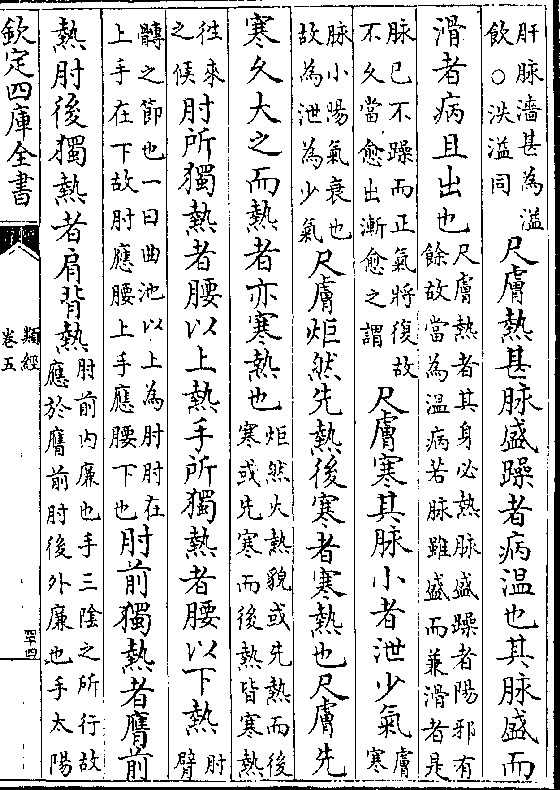 肝脉濇甚為溢
飲○泆溢同
尺膚熱甚脉盛躁者病温也其脉盛而
滑者病且出也
尺膚熱者其身必熱脉盛躁者陽邪有
餘故當為温病若脉雖盛而兼滑者是
脉已不躁而正氣將復故
不久當愈出漸愈之謂
尺膚寒其脉小者泄少氣
膚寒
脉小陽氣衰也
故為泄為少氣
尺膚炬然先熱後寒者寒熱也尺膚先
寒久大之而熱者亦寒熱也
炬然火熱貌或先熱而後
寒或先寒而後熱皆寒熱
往來
之候
肘所獨熱者腰以上熱手所獨熱者腰以下熱
肘臂
髆之節也一曰曲池以上為肘肘在
上手在下故肘應腰上手應腰下也
肘前獨熱者膺前
熱肘後獨熱者肩背熱
肘前内廉也手三陰之所行故
應於膺前肘後外廉也手太陽
欽定四庫全書
類經
卷五
四十四